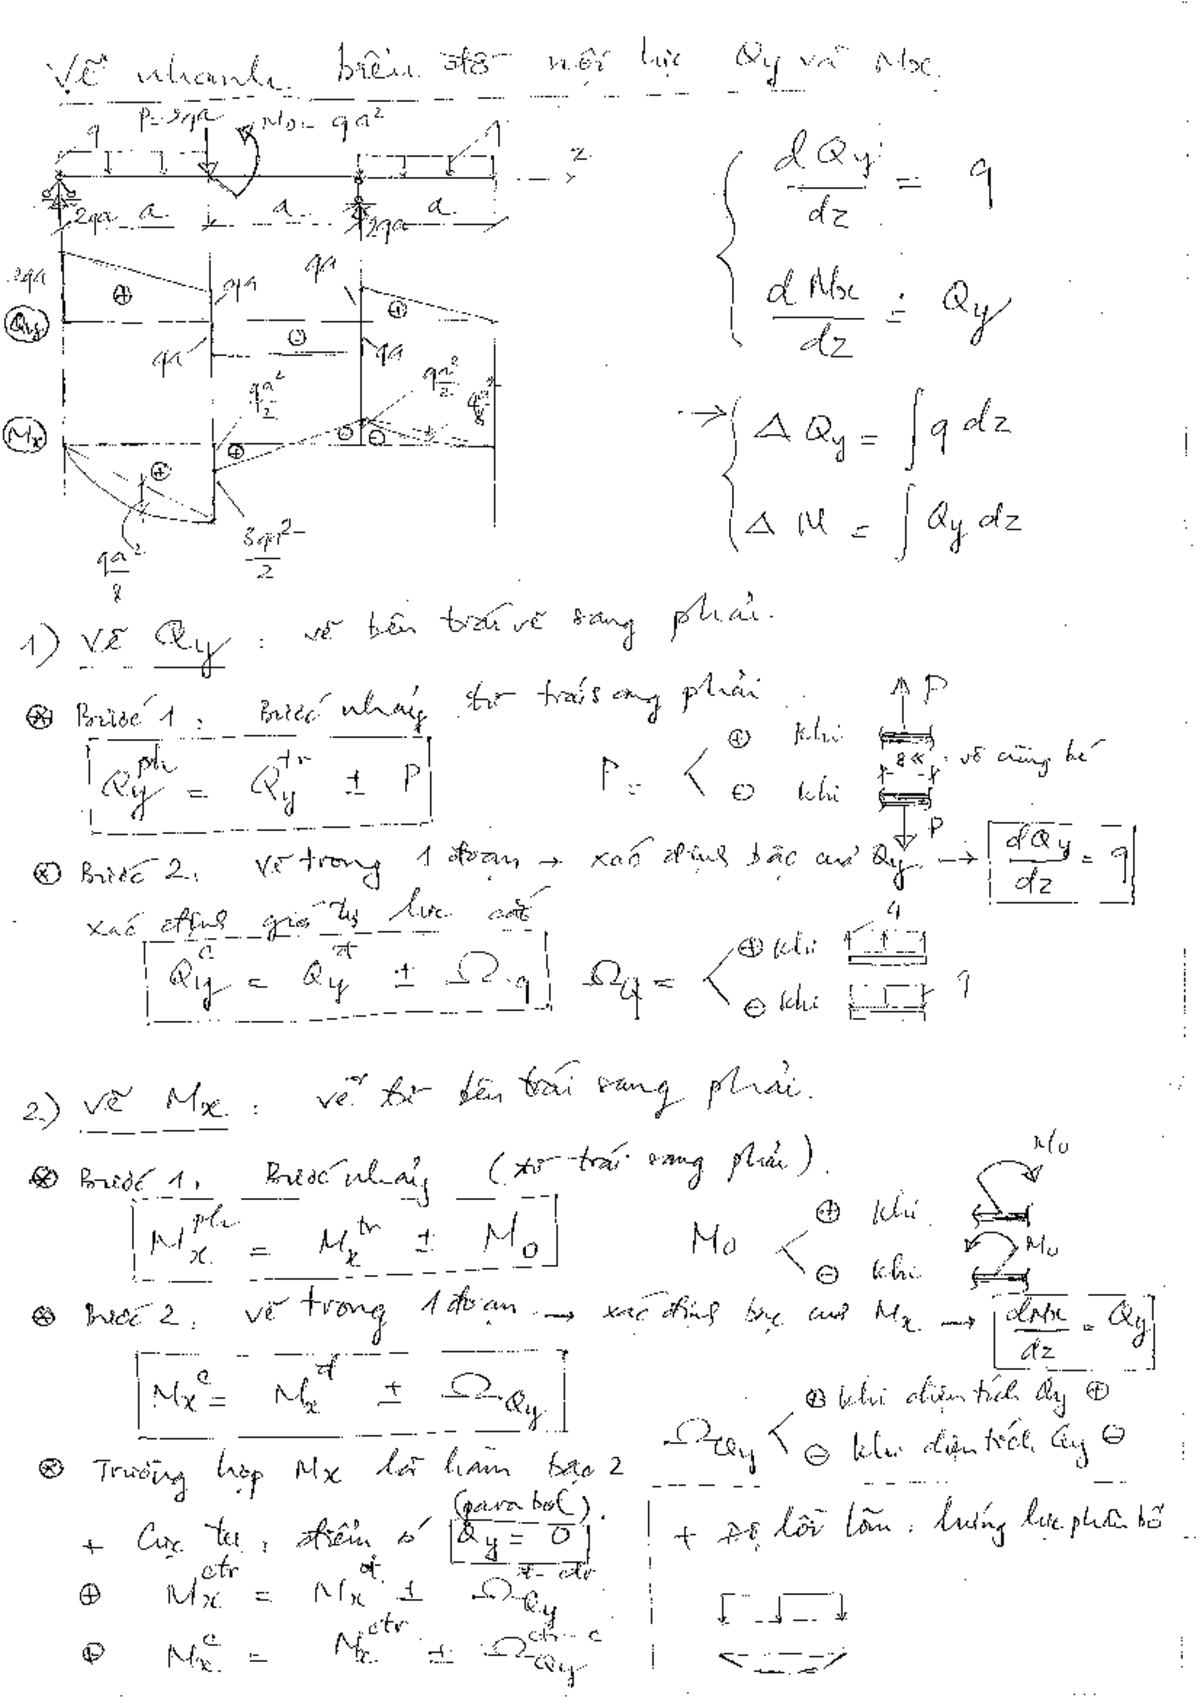 Vẽ nhanh biểu đồ nội lực Qy và Mx.
q P=3qa M0 = qa² q z
2qa a a 2qa a
2qa qa qa
Qy ⊕ ⊖ ⊕
qa qa
qa²/2 qa²/2 qa²/8
Mx ⊕ ⊕ ⊖ ⊖
qa²/8 3qa²/2
dQy/dz = q
dMx/dz = Qy
→ Δ Qy = ∫ q dz
Δ M = ∫ Qy dz
1) Vẽ Qy : vẽ bên trái vẽ sang phải.
⊛ Bước 1 : Bước nhảy từ trái sang phải
Qy^ph = Qy^tr ± P P = ⊕ khi P
⊖ khi P vô cùng bé
⊛ Bước 2 : vẽ trong 1 đoạn → xác định bậc của Qy → dQy/dz = q
xác định giá trị lực cắt
Qy^c = Qy^đ ± Ωq Ωq = ⊕ khi q
⊖ khi q
2) Vẽ Mx : vẽ từ bên trái sang phải.
⊛ Bước 1 : Bước nhảy (từ trái sang phải).
Mx^ph = Mx^tr ± M0 M0 ⊕ khi M0
⊖ khi M0
⊛ Bước 2 : vẽ trong 1 đoạn → xác định bậc của Mx → dMx/dz = Qy
Mx^c = Mx^đ ± ΩQy ΩQy ⊕ khi diện tích Qy ⊕
⊖ khi diện tích Qy ⊖
⊛ Trường hợp Mx là hàm bậc 2 (parabol).
+ Cực trị : điểm có Qy = 0
⊕ Mx^ctr = Mx^đ ± ΩQy^đ-ctr
⊕ Mx^c = Mx^ctr ± ΩQy^ctr-c
+ Độ lồi lõm : hướng lực phân bố